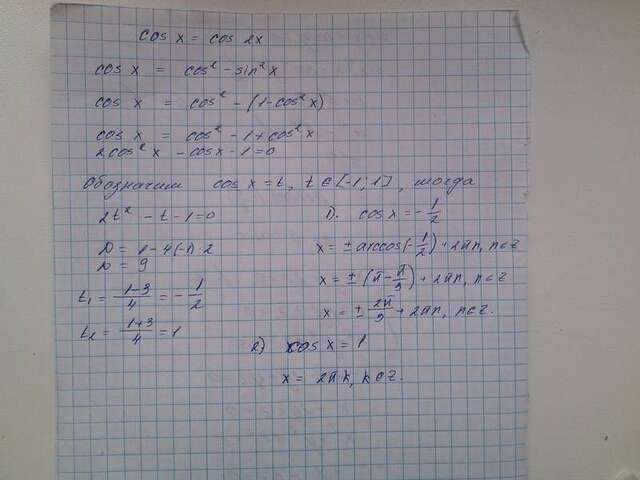 cos x = cos 2x
cos x = cos² - sin²x
cos x = cos² - (1-cos²x)
cos x = cos² - 1 + cos²x
2cos²x - cosx - 1 = 0
Обозначим cos x = t, t ∈ [-1; 1], тогда
2t² - t - 1 = 0
D = 1 - 4(-1)·2
D = 9
t₁ = (1-3)/4 = -1/2
t₂ = (1+3)/4 = 1
1). cos x = -1/2
x = ± arccos(-1/2) + 2πn, n∈z
x = ± (π - π/3) + 2πn, n∈z
x = ± 2π/3 + 2πn, n∈z.
2) cos x = 1
x = 2πk, k∈z.